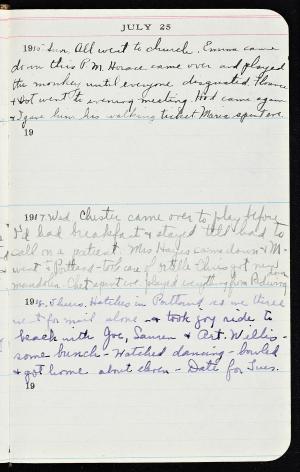 JULY 25
1915 Sun. All went to church. Emma came
down this P.M. Horace came over and played
the monkey until everyone disgusted. Florence
+ Dot went to evening meeting. Hood came again
+ I gave him his walking ticket Maria spent eve.
19
1917 Wed Chester came over to play before
I'd had breakfast + stayed till had to
call on a patient. Mrs Hayes came down + M
went to Portland - took care of
mandolin. Chet spent eve. played everything from
19 Thurs. Hatches in Portland so we three
went for mail alone - + took joy ride to
beach with Joe, Lauren + Art. Willis -
some bunch - Watched dancing - bowled
+ got home about eleven - Date for Tues.
19